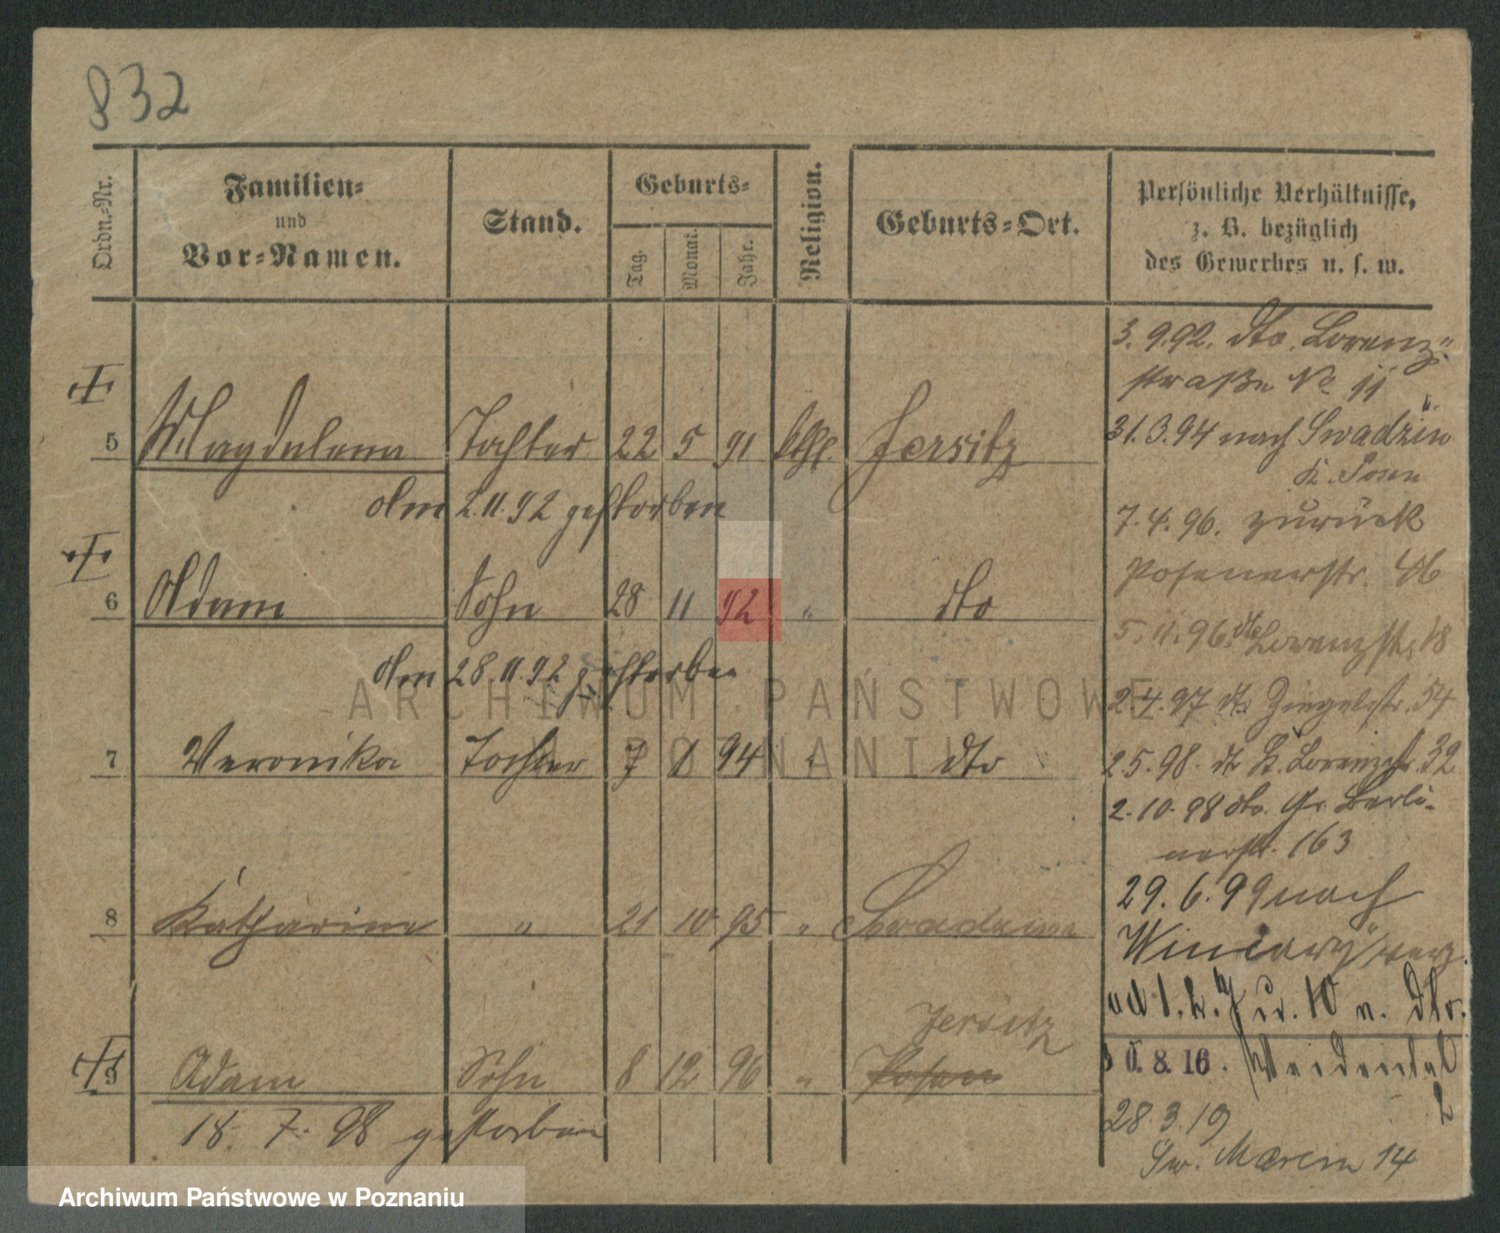 832
Ordn.-Nr.
Familien-
und
Vor-Namen.
Stand.
Geburts-
Tag.
Monat.
Jahr.
Religion.
Geburts-Ort.
Persönliche Verhältnisse,
z. B. bezüglich
des Gewerbes u. s. w.
5 Magdalena Tochter 22 5 91 kath. Jersitz
Am 2.11.92 gestorben
6 Adam Sohn 28 11 92 " dto
Am 28.11.92 gestorben
7 Veronika Tochter 7 1 94 " dto
8 Katharina " 21 10 95 " Swadzim
Jersitz
9 Adam Sohn 8 12 96 " Posen
18. 7. 98 gestorben
3.9.92. dto. Lorenz-
straße No 11
31.3.94 nach Swadzim
K. Posen
7.4.96. zurück
Posenerstr. 46
5.11.96. dto Lorenzstr. 18
2.4.97 dto Ziegelstr. 54
2.5.98. dto Lorenzstr. 32
2.10.98 dto. Gr. Berli-
nerstr. 163
29.6.99 nach
Winiary
10 n. dto.
30.8.16. Weidental
2
28.3.19
Sw. Marcin 14
ARCHIWUM PAŃSTWOWE
W POZNANIU
Archiwum Państwowe w Poznaniu